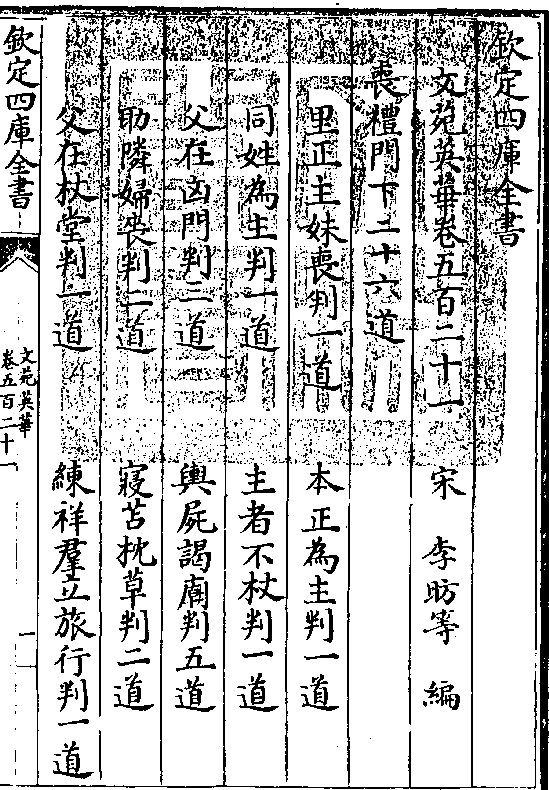 欽定四庫全書
文苑英華卷五百二十一　宋　李昉等　編
喪禮門下二十六道
里正主妹喪判一道　本正為主判一道
同姓為主判一道　主者不杖判一道
父在凶門判三道　輿屍謁廟判五道
助隣婦喪判二道　寢苫枕草判二道
父在杖堂判一道　練祥羣立旅行判一道
欽定四庫全書
文苑英華
卷五百二十一
一